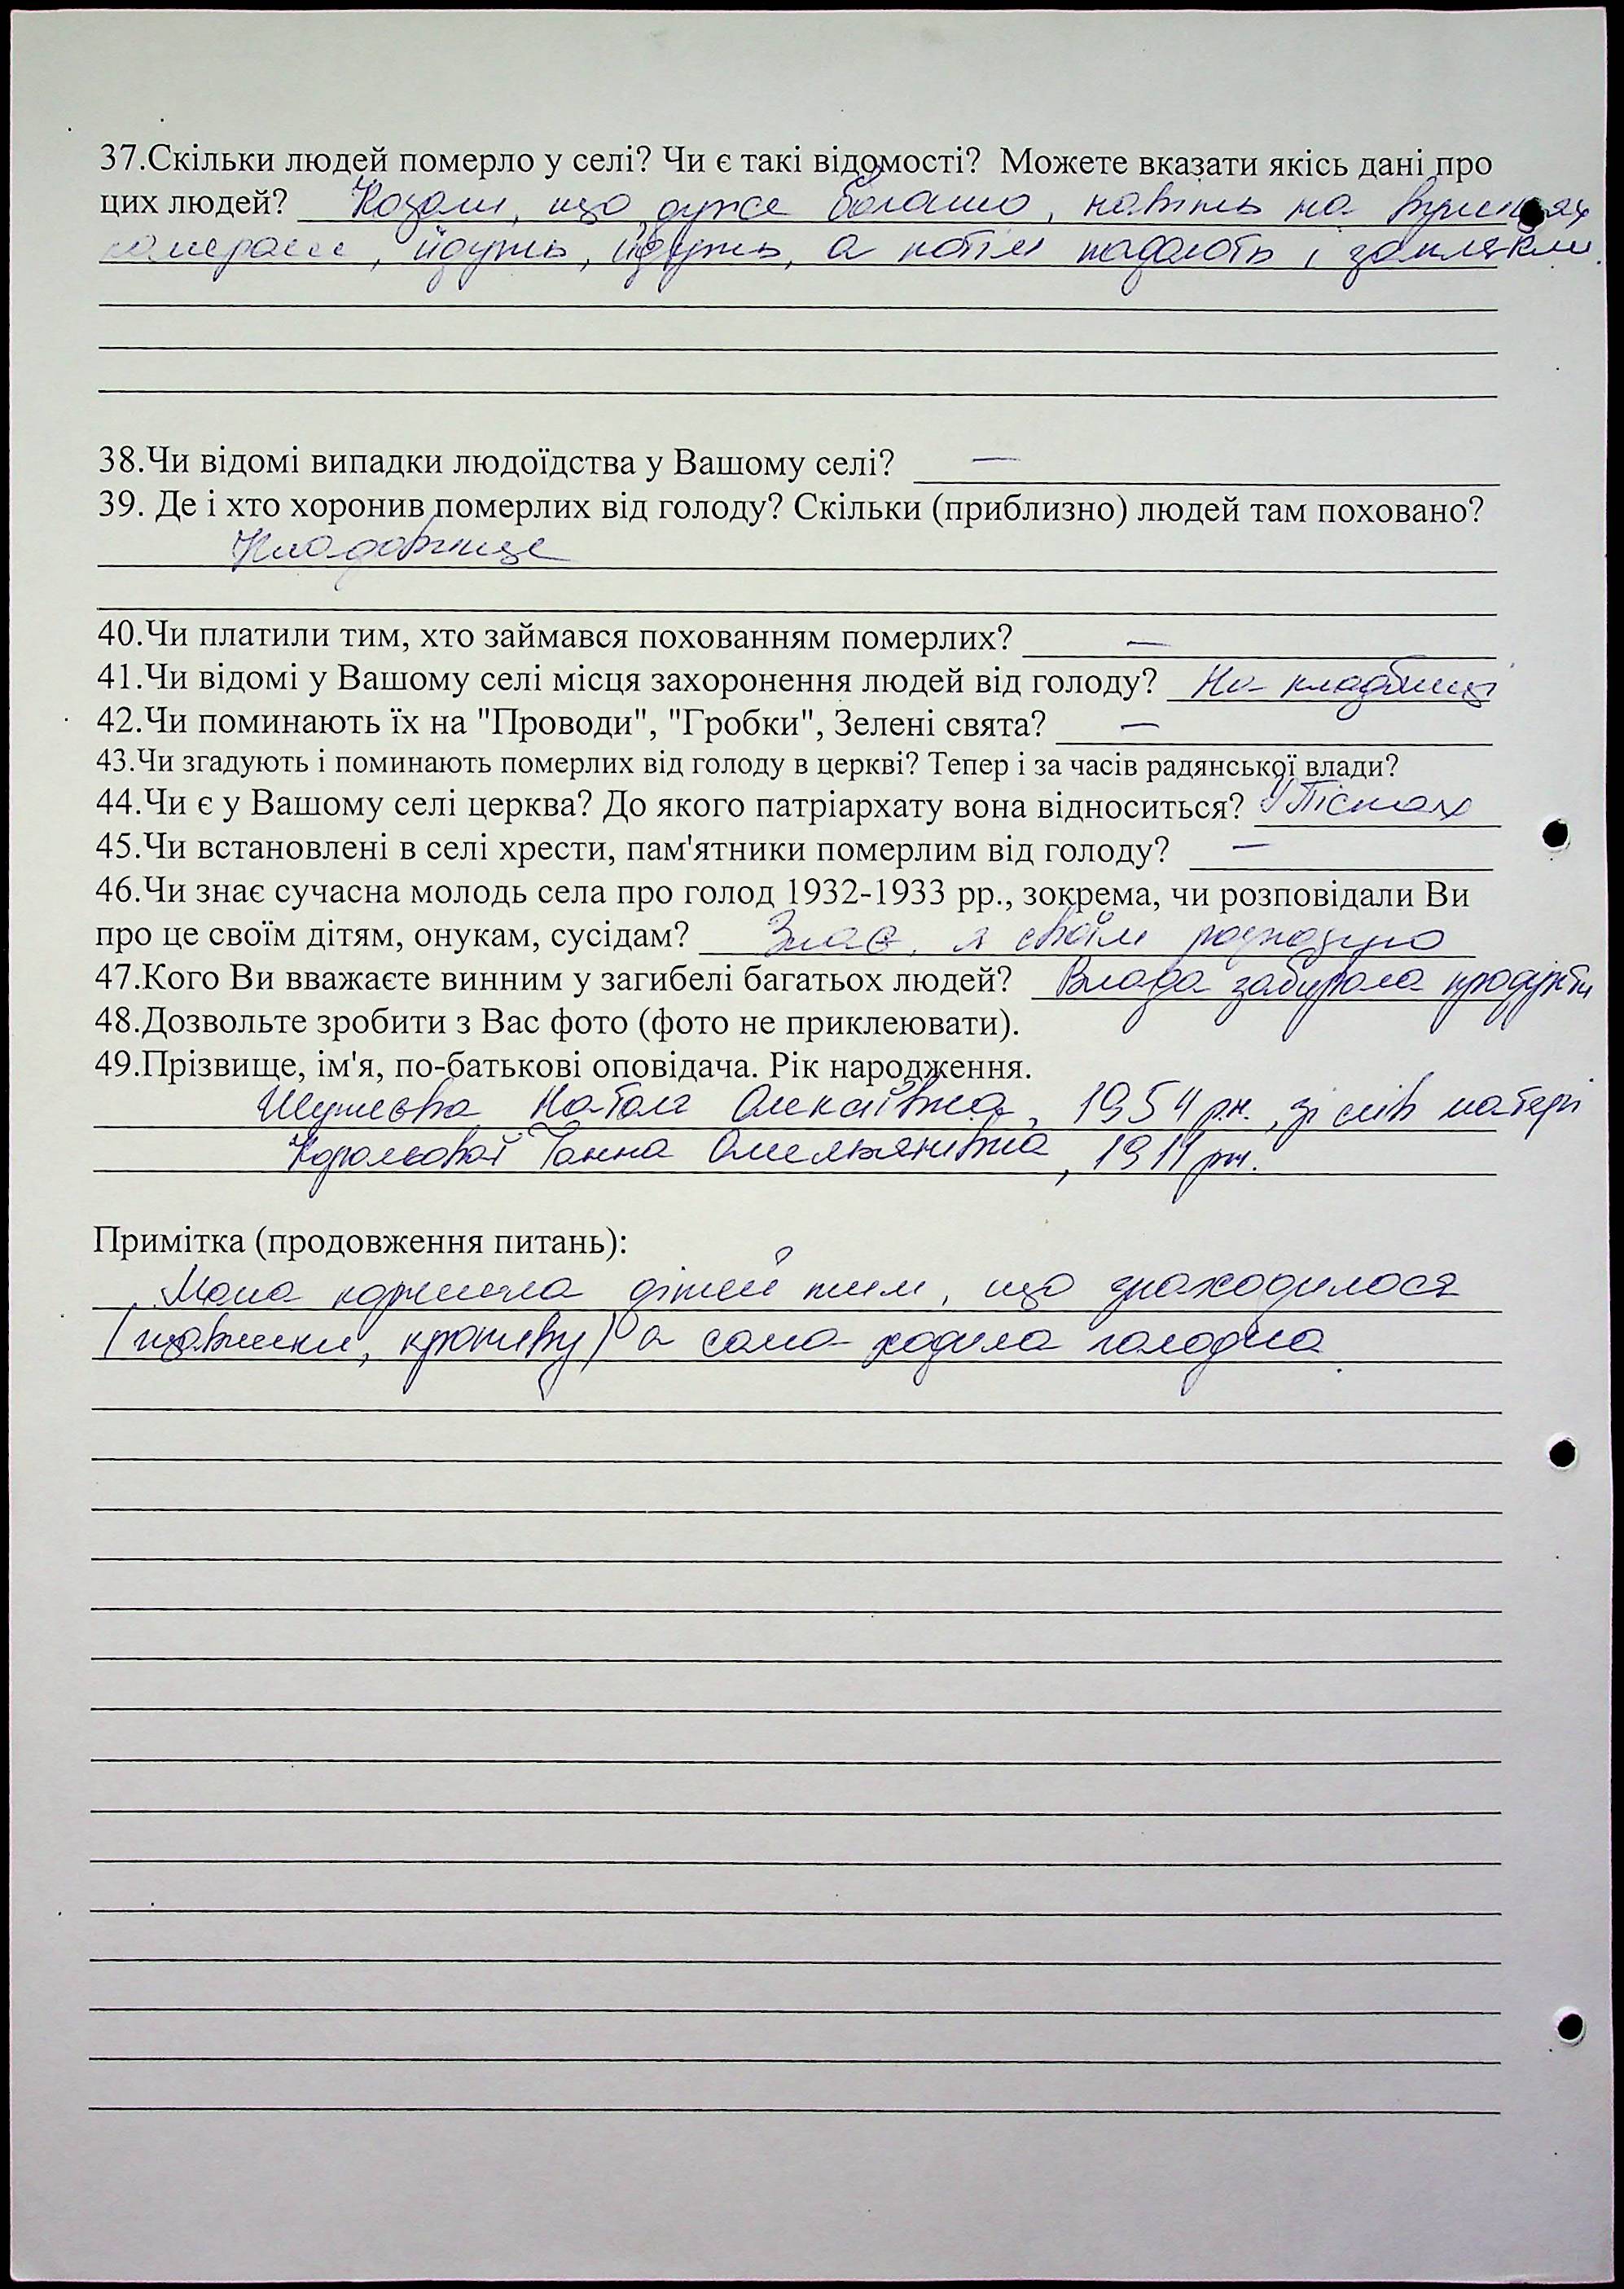 37.Скільки людей померло у селі? Чи є такі відомості? Можете вказати якісь дані про
цих людей? Казали, що дуже багато, навіть на вулицях
помирали, йдуть, йдуть, а потім падають і заплякли.
38.Чи відомі випадки людоїдства у Вашому селі? —
39. Де і хто хоронив померлих від голоду? Скільки (приблизно) людей там поховано?
Кладовище
40.Чи платили тим, хто займався похованням померлих? —
41.Чи відомі у Вашому селі місця захоронення людей від голоду? На кладбищі
42.Чи поминають їх на "Проводи", "Гробки", Зелені свята? —
43.Чи згадують і поминають померлих від голоду в церкві? Тепер і за часів радянської влади?
44.Чи є у Вашому селі церква? До якого патріархату вона відноситься? У Пістах
45.Чи встановлені в селі хрести, пам'ятники померлим від голоду? —
46.Чи знає сучасна молодь села про голод 1932-1933 рр., зокрема, чи розповідали Ви
про це своїм дітям, онукам, сусідам? Знає, я своїм розказую
47.Кого Ви вважаєте винним у загибелі багатьох людей? Влада забирала продукти
48.Дозвольте зробити з Вас фото (фото не приклеювати).
49.Прізвище, ім'я, по-батькові оповідача. Рік народження.
Наталя Олексіївна, 1954 р.н., зі слів матері
Корольової Ганна Омелянівна, 1911 рн.
Примітка (продовження питань):
Мама кормила дітей тим, що знаходилося
(щавлики, кропиву) а сама ходила голодна.